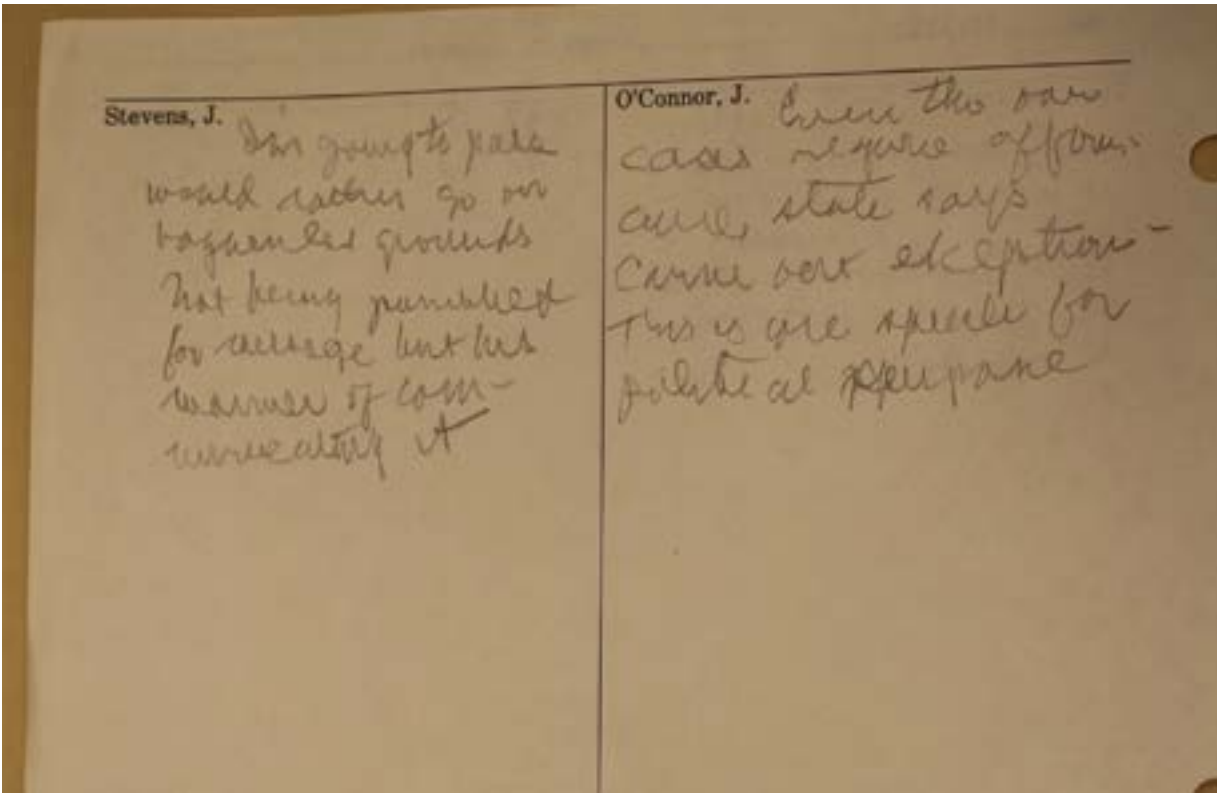 Stevens, J.
I'm going to pass
would rather go on
vagueness grounds
Not being punished
for message but his
manner of com-
municating it
O'Connor, J. Even tho our
cases require affirm-
ance, state says
carve out exception -
This is pure speech for
political purpose